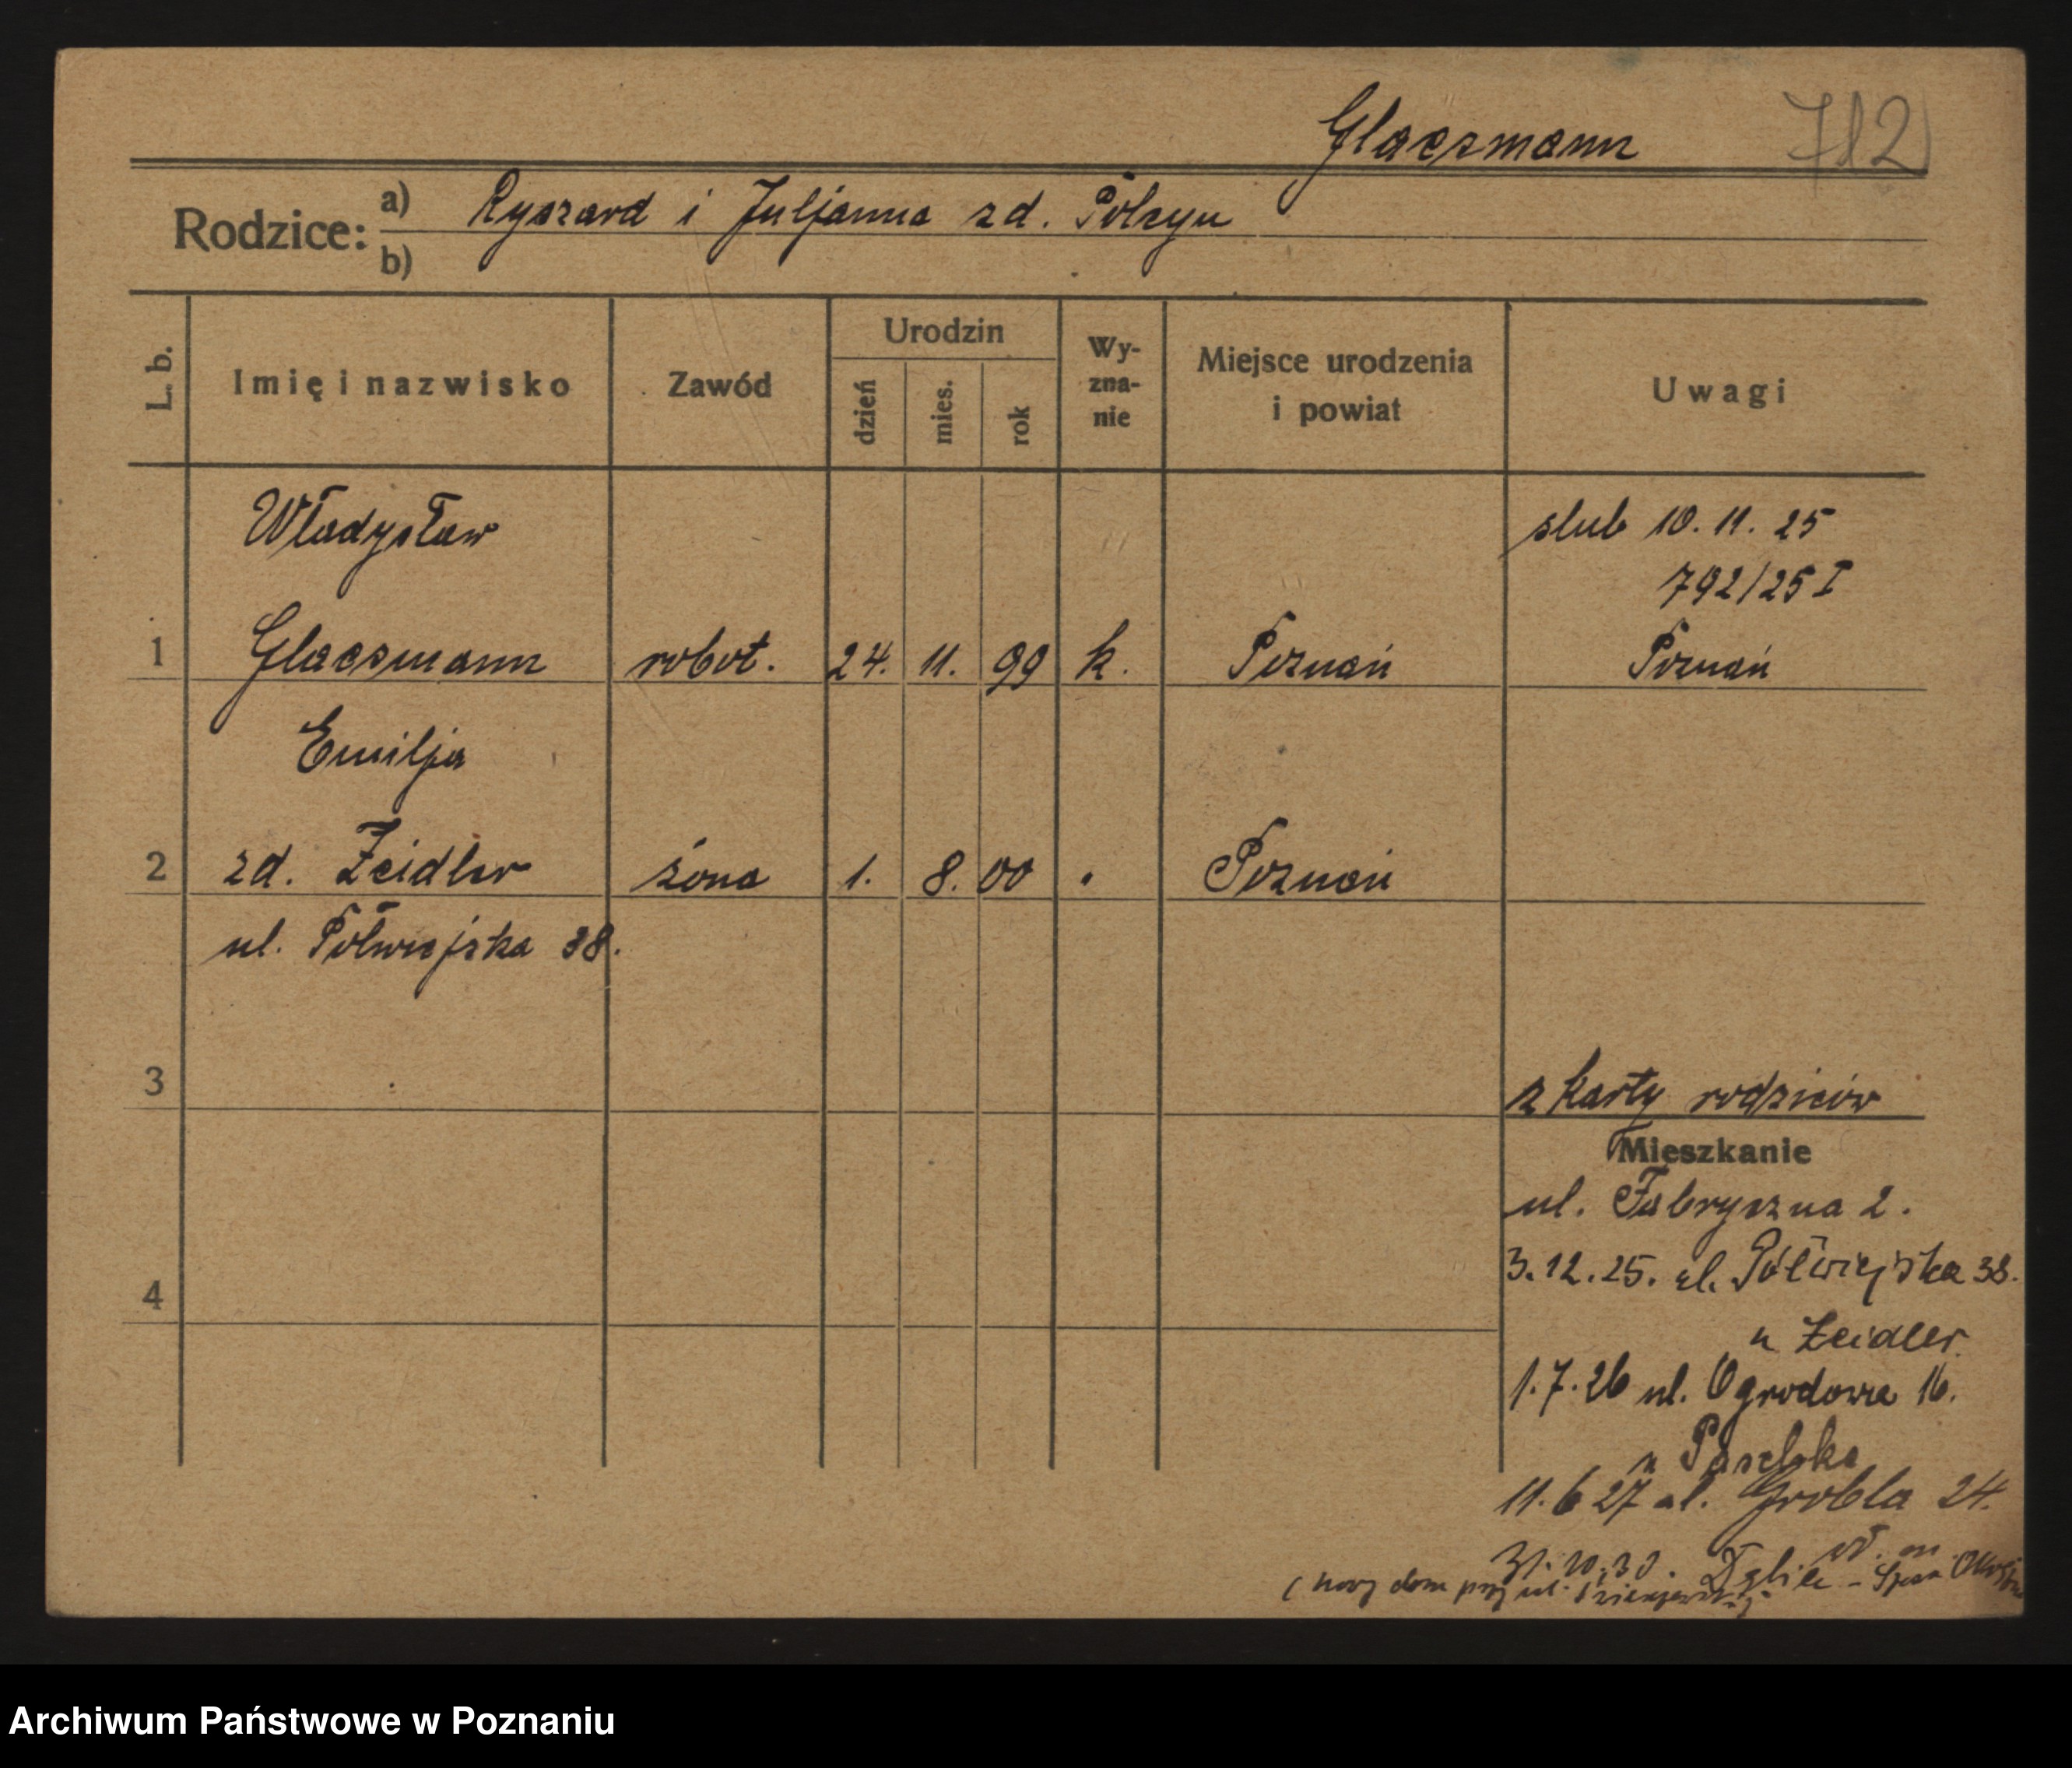 Glaesmann 712
Rodzice: a) Ryszard i Juljanna zd. Polzyn
b)
L. b. Imię i nazwisko Zawód Urodzin dzień mies. rok Wy-zna-nie Miejsce urodzenia i powiat Uwagi
Władysław ślub 10. 11. 25
792/25 I
1 Glaesmann robot. 24. 11. 99 k. Poznań Poznań
Emilja
2 zd. Zeidler żona 1. 8. 00 " Poznań
ul. Półwiejska 38.
3 z karty rodziców
Mieszkanie
ul. Fabryczna 2.
3.12.25. ul. Półwiejska 38.
4
u Zeidler.
1.7.26 ul. Ogrodowa 16.
u
11.6 27 ul. Grobla 24.
31.10.30. Dębiec
( nowy dom przy ul.
Archiwum Państwowe w Poznaniu